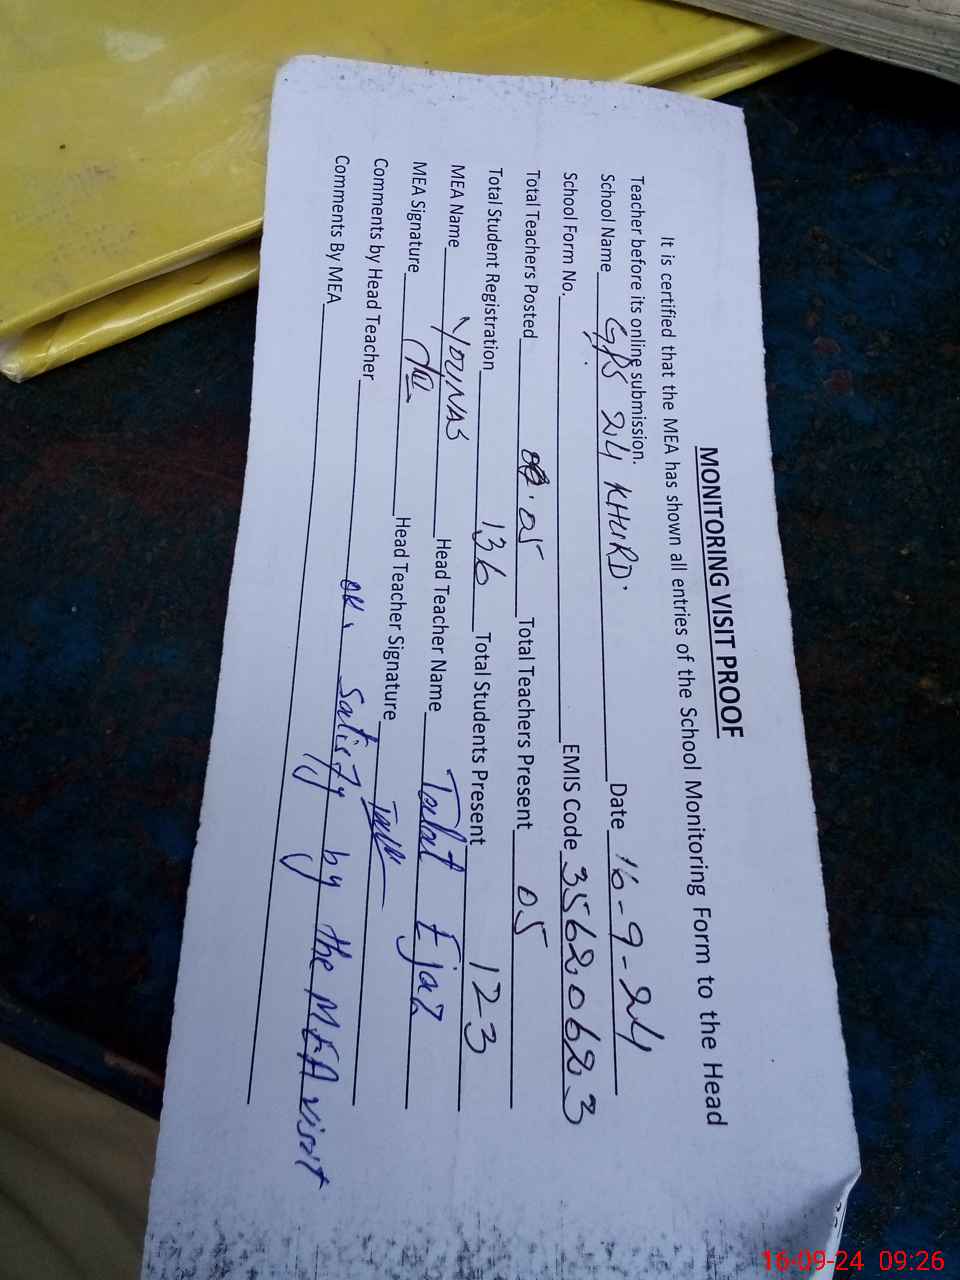 MONITORING VISIT PROOF
It is certified that the MEA has shown all entries of the School Monitoring Form to the Head
Teacher before its online submission.
School Name GPS 24 KHURD. Date 16-9-24
School Form No. EMIS Code 35620623
Total Teachers Posted 05 Total Teachers Present 05
Total Student Registration 136 Total Students Present 123
MEA Name YOUNAS Head Teacher Name Talat Ejaz
MEA Signature Head Teacher Signature
Comments by Head Teacher ok. Satisfy by the MEA visit
Comments By MEA
16-09-24 09:26